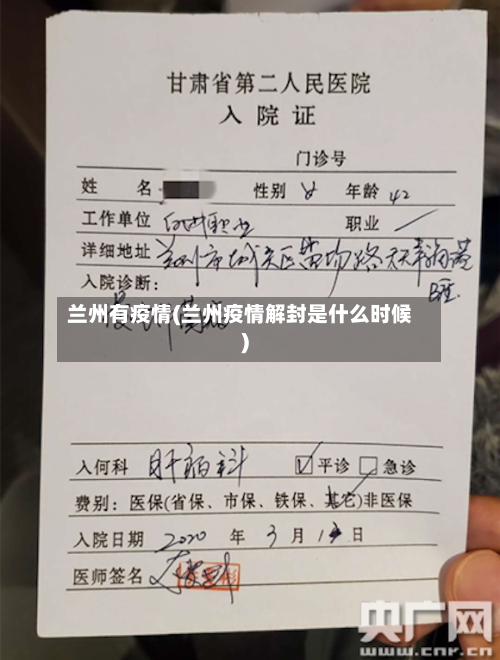 甘肃省第二人民医院
入院证
门诊号
姓名 性别 女 年龄 42
工作单位 职业
详细地址 兰州市城关区苗圃路
入院诊断:
兰州有疫情(兰州疫情解封是什么时候
)
入何科 肝病科 ☑平诊 □急诊
费别:医保(省保、市保、铁保、其它)非医保
入院日期 2020 年 3 月 日
医师签名
央广网
www.cnr.cn